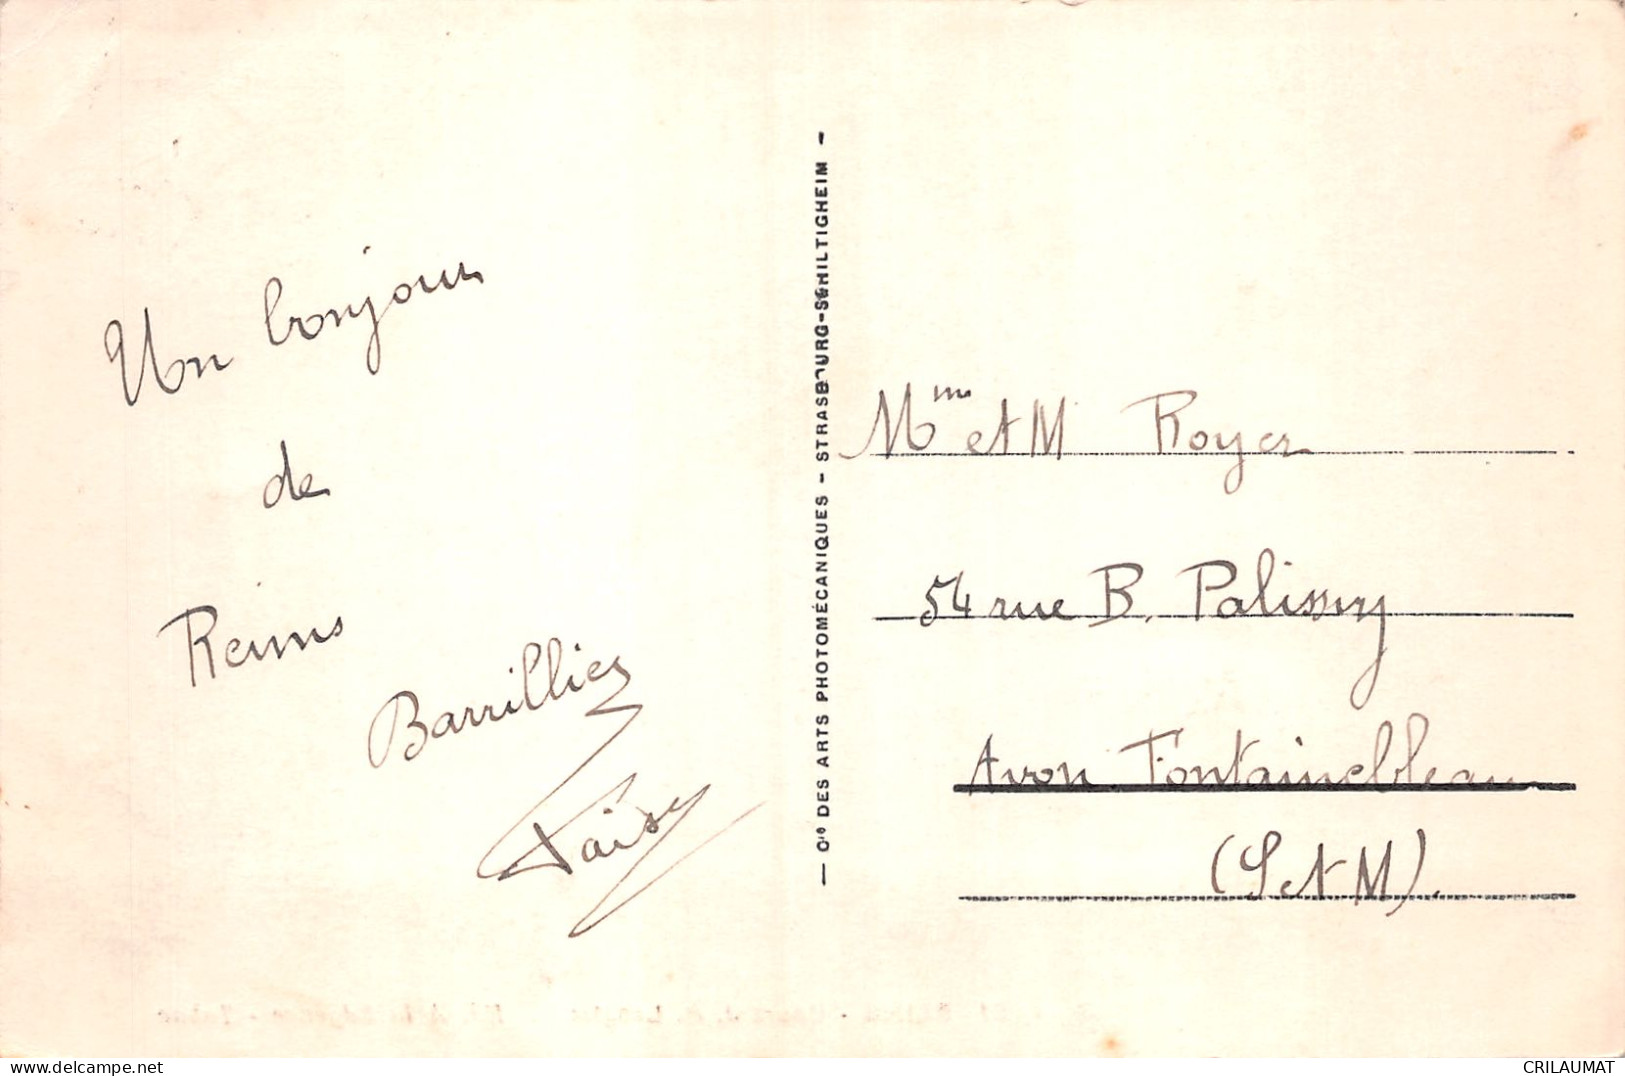 Un bonjour
de
Reims
Barrillier
— Cie DES ARTS PHOTOMÉCANIQUES - STRASBOURG-SCHILTIGHEIM -
Mme et M Royer
54 rue B. Palissy
Avon Fontainebleau
(S et M).
CRILAUMAT